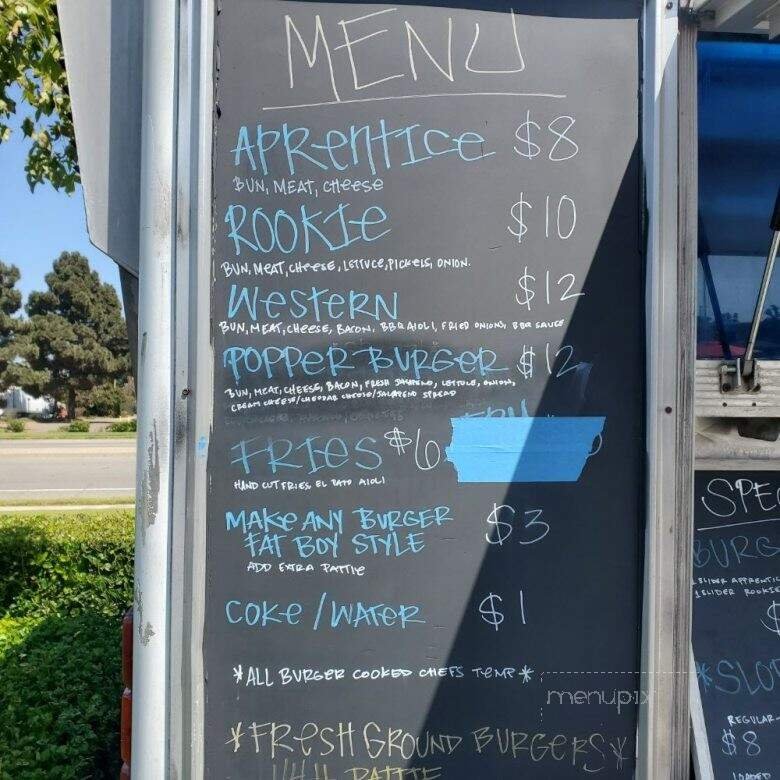 MENU
APRENTICE $8
BUN, MEAT, CHEESE
ROOKIE $10
BUN, MEAT, CHEESE, LETTUCE, PICKELS, ONION.
WESTERN $12
BUN, MEAT, CHEESE, BACON, BBQ AIOLI, FRIED ONIONS, BBQ SAUCE
POPPER BURGER $12
BUN, MEAT, CHEESE, BACON, FRESH JALAPENO, LETTUCE, ONIONS,
CREAM CHEESE/CHEDDAR CHEESE/JALAPENO SPREAD
FRIES $6
HAND CUT FRIES, EL PATO AIOLI
MAKE ANY BURGER $3
FAT BOY STYLE
ADD EXTRA PATTIE
COKE / WATER $1
*ALL BURGER COOKED CHEFS TEMP*
menupix
*FRESH GROUND BURGERS*
PATTIE
SPE
BURG
1 SLIDER APPRENTIC
1 SLIDER ROOKIE
$
*SLO
REGULAR
$8
LOADED